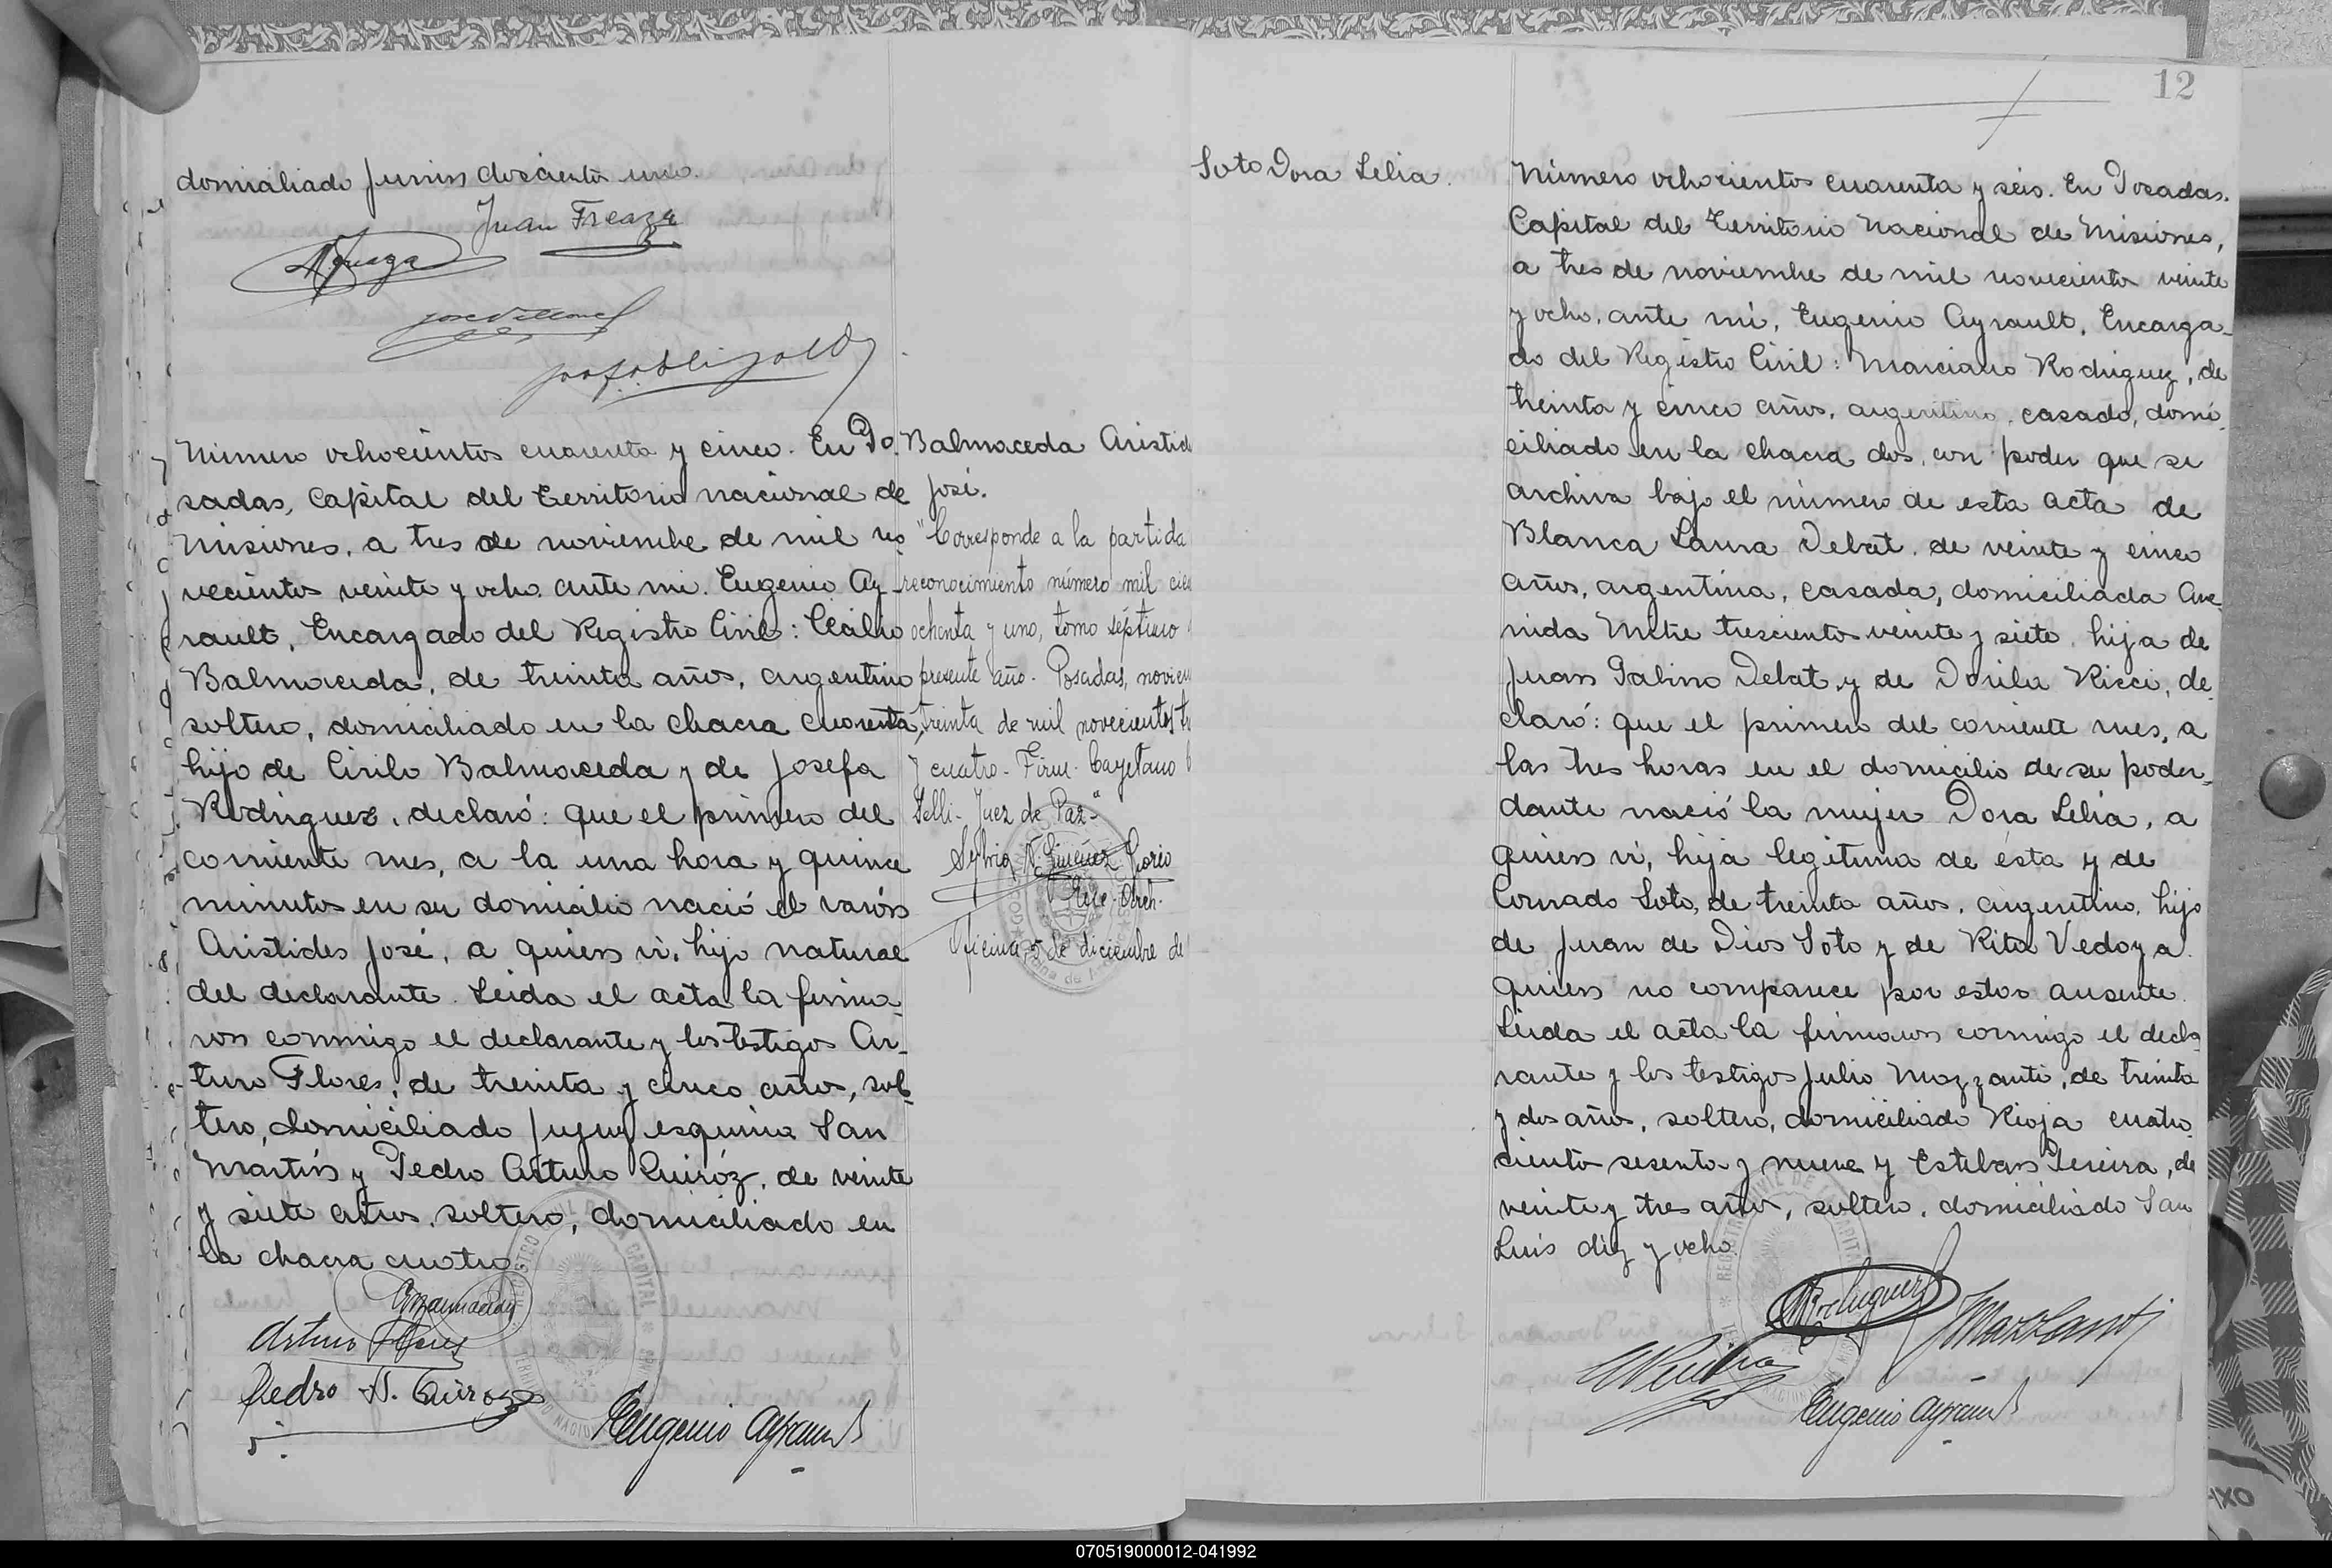 domiciliado Junin doscientos uno.
Juan Freaza
Número ochocientos cuarenta y cinco. En Po
sadas, Capital del Territorio nacional de
Misiones, a tres de noviembre de mil no
vecientos veinte y ocho, ante mi, Eugenio Ay
rault, Encargado del Registro Civil:
Balmaceda, de treinta años, argentino
soltero, domiciliado en la chacra cuarenta,
hijo de Cirilo Balmaceda y de Josefa
Rodriguez, declaró: que el primero del
corriente mes, a la una hora y quince
minutos en su domicilio nació el varón
Aristides José, a quien vi, hijo natural
del declarante. Leida el acta la firma-
ron conmigo el declarante y los testigos Ar-
turo Flores, de treinta y cinco años, sol-
tero, domiciliado Jujuy esquina San
Martín y Pedro Arturo Quiróz, de veinte
y siete años, soltero, domiciliado en
la chacra cuatro.
Arturo Flores
Pedro A. Quiroz
Eugenio Ayrault
Balmaceda Aristid
José.
"Corresponde a la partida
reconocimiento número mil cien
ochenta y uno, tomo séptimo
presente año. Posadas, noviem
treinta de mil novecientos tr
y cuatro - Firm. Cayetano
Selli - Juez de Paz"
Gimenez
Oficina, 5 de diciembre de
12
Soto Dora Lelia.
Número ochocientos cuarenta y seis. En Posadas,
Capital del Territorio Nacional de Misiones,
a tres de noviembre de mil novecientos veinte
y ocho, ante mí, Eugenio Ayrault, Encarga-
do del Registro Civil: Marciano Rodriguez, de
treinta y cinco años, argentino, casado, domi-
ciliado en la chacra dos, con poder que se
archiva bajo el número de esta acta de
Blanca Laura Debat, de veinte y cinco
años, argentina, casada, domiciliada Ave-
nida Mitre trescientos veinte y siete, hija de
Juan Galino Debat y de Dorila Ricci, de-
claró: que el primero del corriente mes, a
las tres horas en el domicilio de su poder-
dante nació la mujer Dora Lelia, a
quien vi, hija legitima de ésta y de
Conrado Soto, de treinta años, argentino, hijo
de Juan de Dios Soto y de Rita Vedoya.
quien no comparece por estar ausente.
Leida el acta la firmaron conmigo el decla-
rante y los testigos Julio Mazzanti, de treinta
y dos años, soltero, domiciliado Rioja cuatro-
ciento sesenta y nueve y Esteban Pereira, de
veinte y tres años, soltero, domiciliado San
Luis diez y ocho.
MRodriguez
JMazzanti
Eugenio Ayrault
070519000012-041992